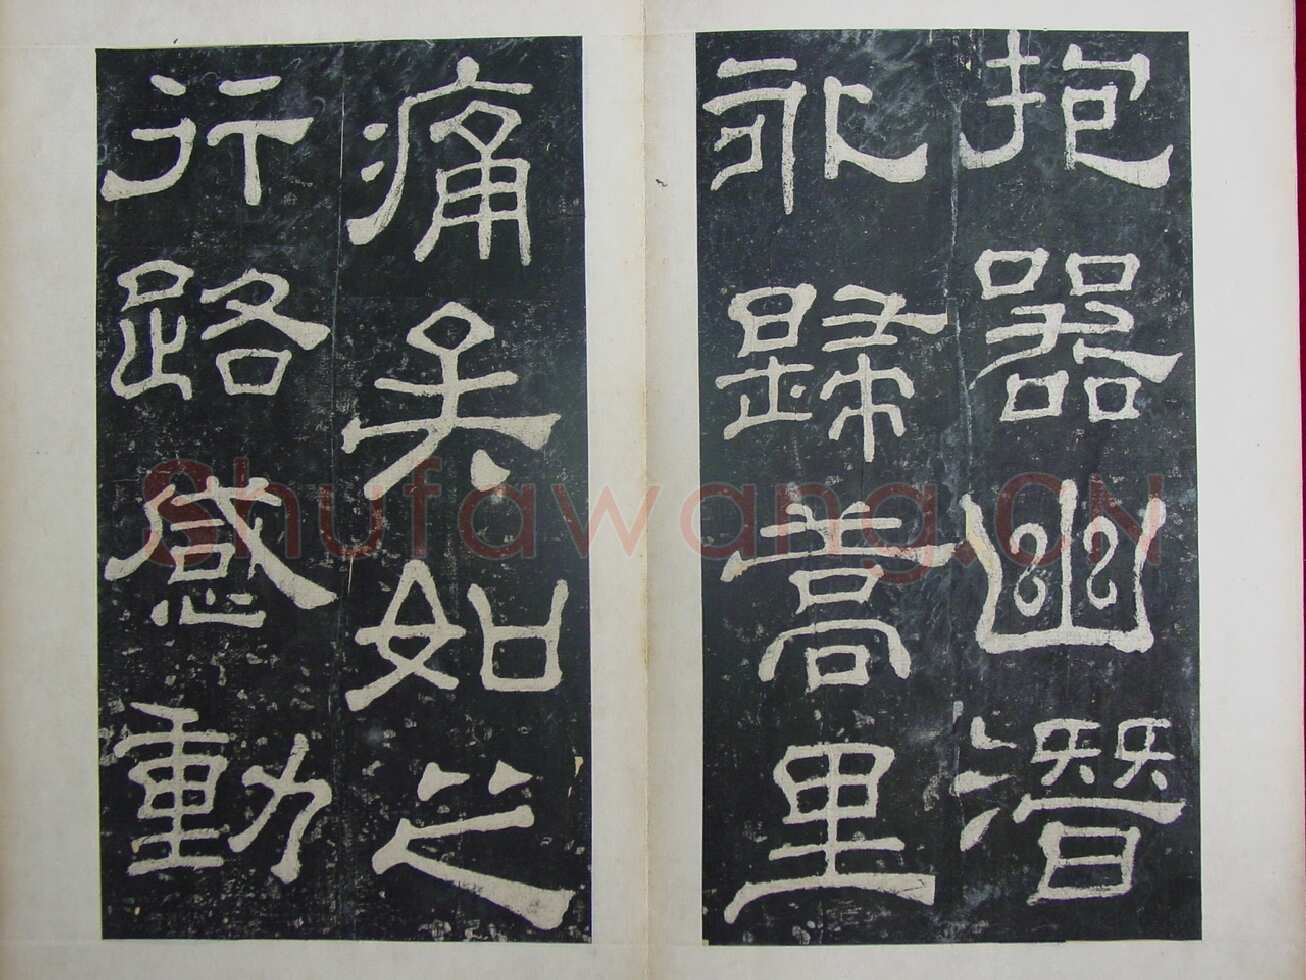 抱器幽潛
永歸蒿里
痛矣如之
行路感動
Shufawang.CN